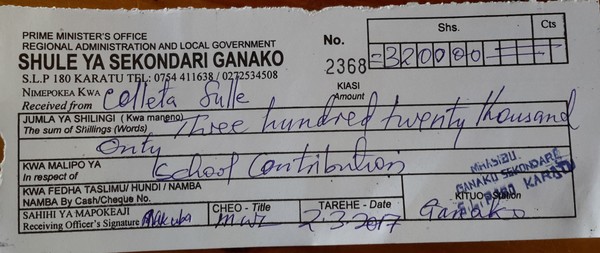 PRIME MINISTER'S OFFICE
REGIONAL ADMINISTRATION AND LOCAL GOVERNMENT
SHULE YA SEKONDARI GANAKO
S.L.P 180 KARATU TEL: 0754 411638 / 0272534508
No. 2368
Shs. Cts
=320000=
NIMEPOKEA KWA
Received from Colleta Sulle
KIASI
Amount
JUMLA YA SHILINGI (Kwa maneno)
The sum of Shillings (Words) Three hundred twenty thousand
Only
KWA MALIPO YA
In respect of School Contribution
KWA FEDHA TASLIMU/ HUNDI / NAMBA
NAMBA By Cash/Cheque No.
MHASIBU
GANAKO SEKONDARI
180 KARATU
KITUO - Station
Ganako
SAHIHI YA MAPOKEAJI
Receiving Officer's Signature
CHEO - Title
TAREHE - Date
2-3-2017